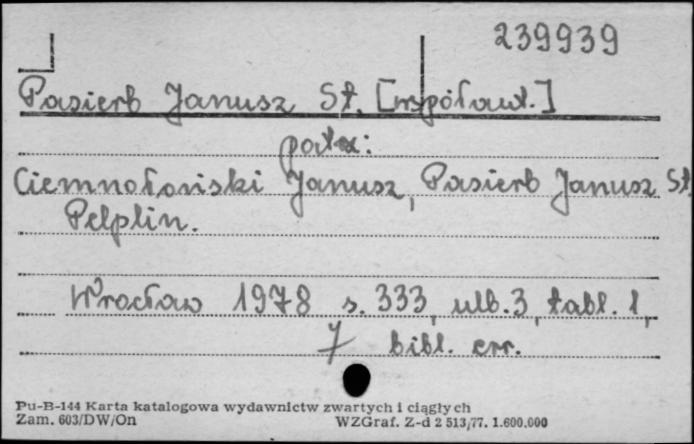 239939
Pasierb Janusz St. [współaut.]
patrz:
Ciemnołoński Janusz, Pasierb Janusz St.
Pelplin.
Wrocław 1978 s. 333, ulb. 3, tabl. 1,
7 bibl. err.
Pu-B-144 Karta katalogowa wydawnictw zwartych i ciągłych
Zam. 603/DW/On WZGraf. Z-d 2 513/77. 1.600.000